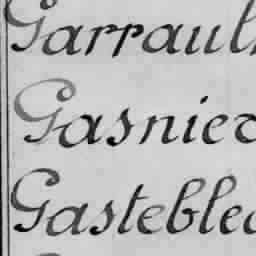 Garraul
Gasnier
Gasteble